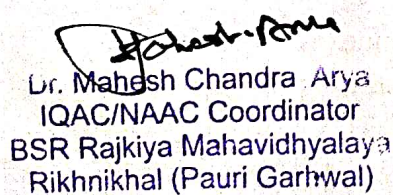 Mahesh Arya
Dr. Mahesh Chandra Arya
IQAC/NAAC Coordinator
BSR Rajkiya Mahavidhyalaya
Rikhnikhal (Pauri Garhwal)